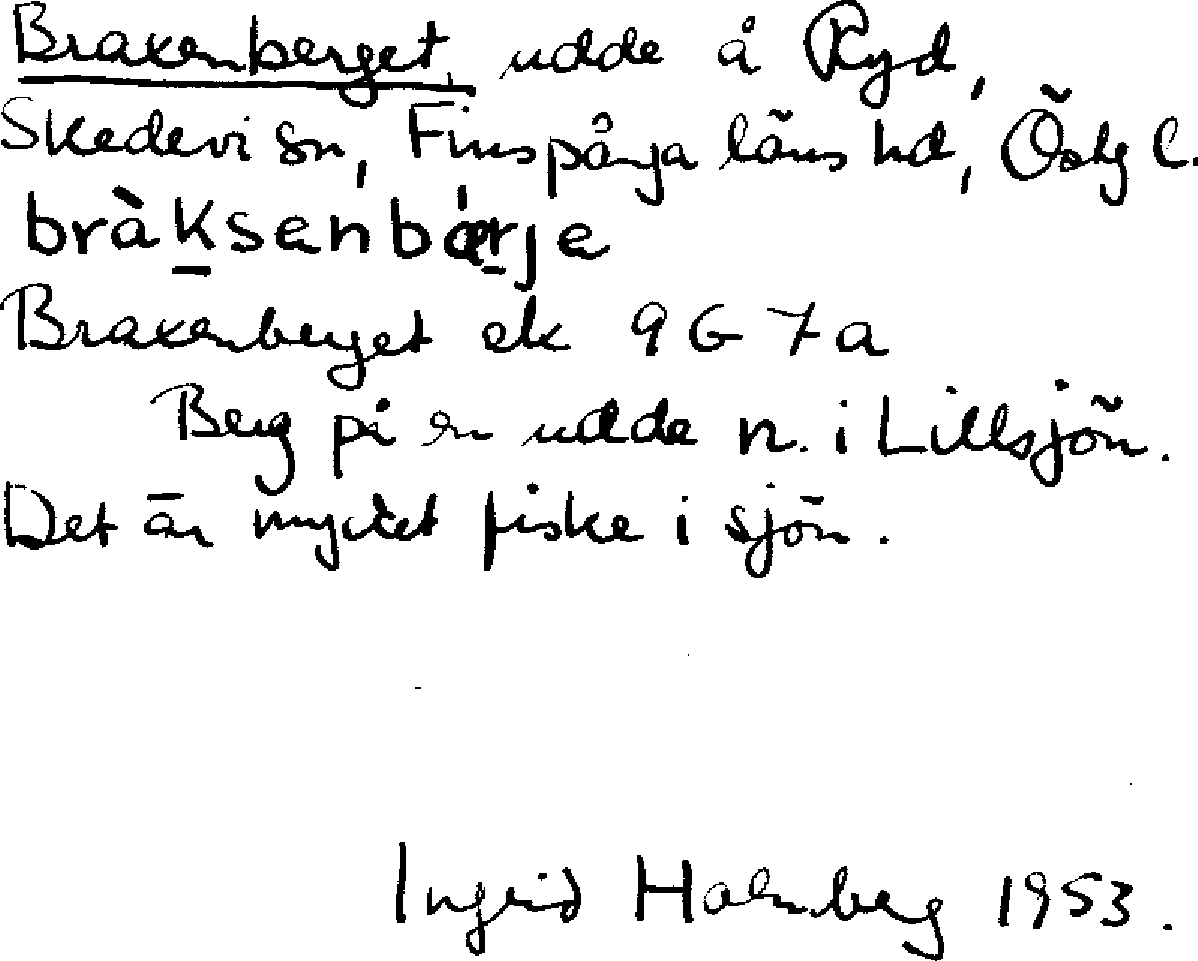 Braxenberget, udde å Ryd,
Skedevi sn, Finspånga läns hd, Östg l.
bràksenbærje
Braxenberget ek 9 G 7 a
Berg på en udde n. i Lillsjön.
Det är mycket fiske i sjön.
Ingrid Holmberg 1953.